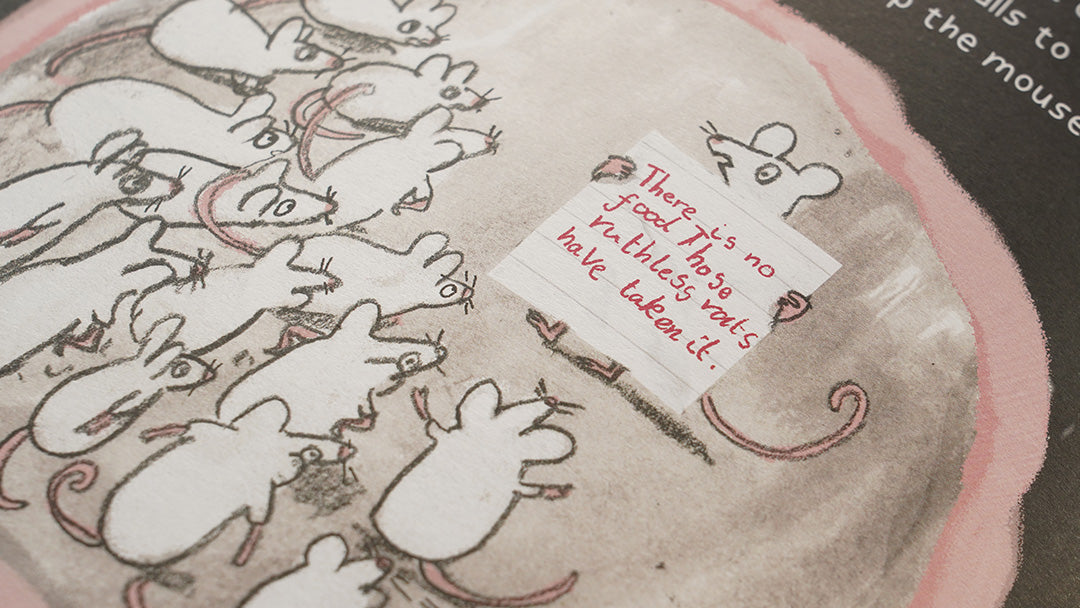 alls to
p the mouse
There is no
food Those
ruthless rats
have taken it.